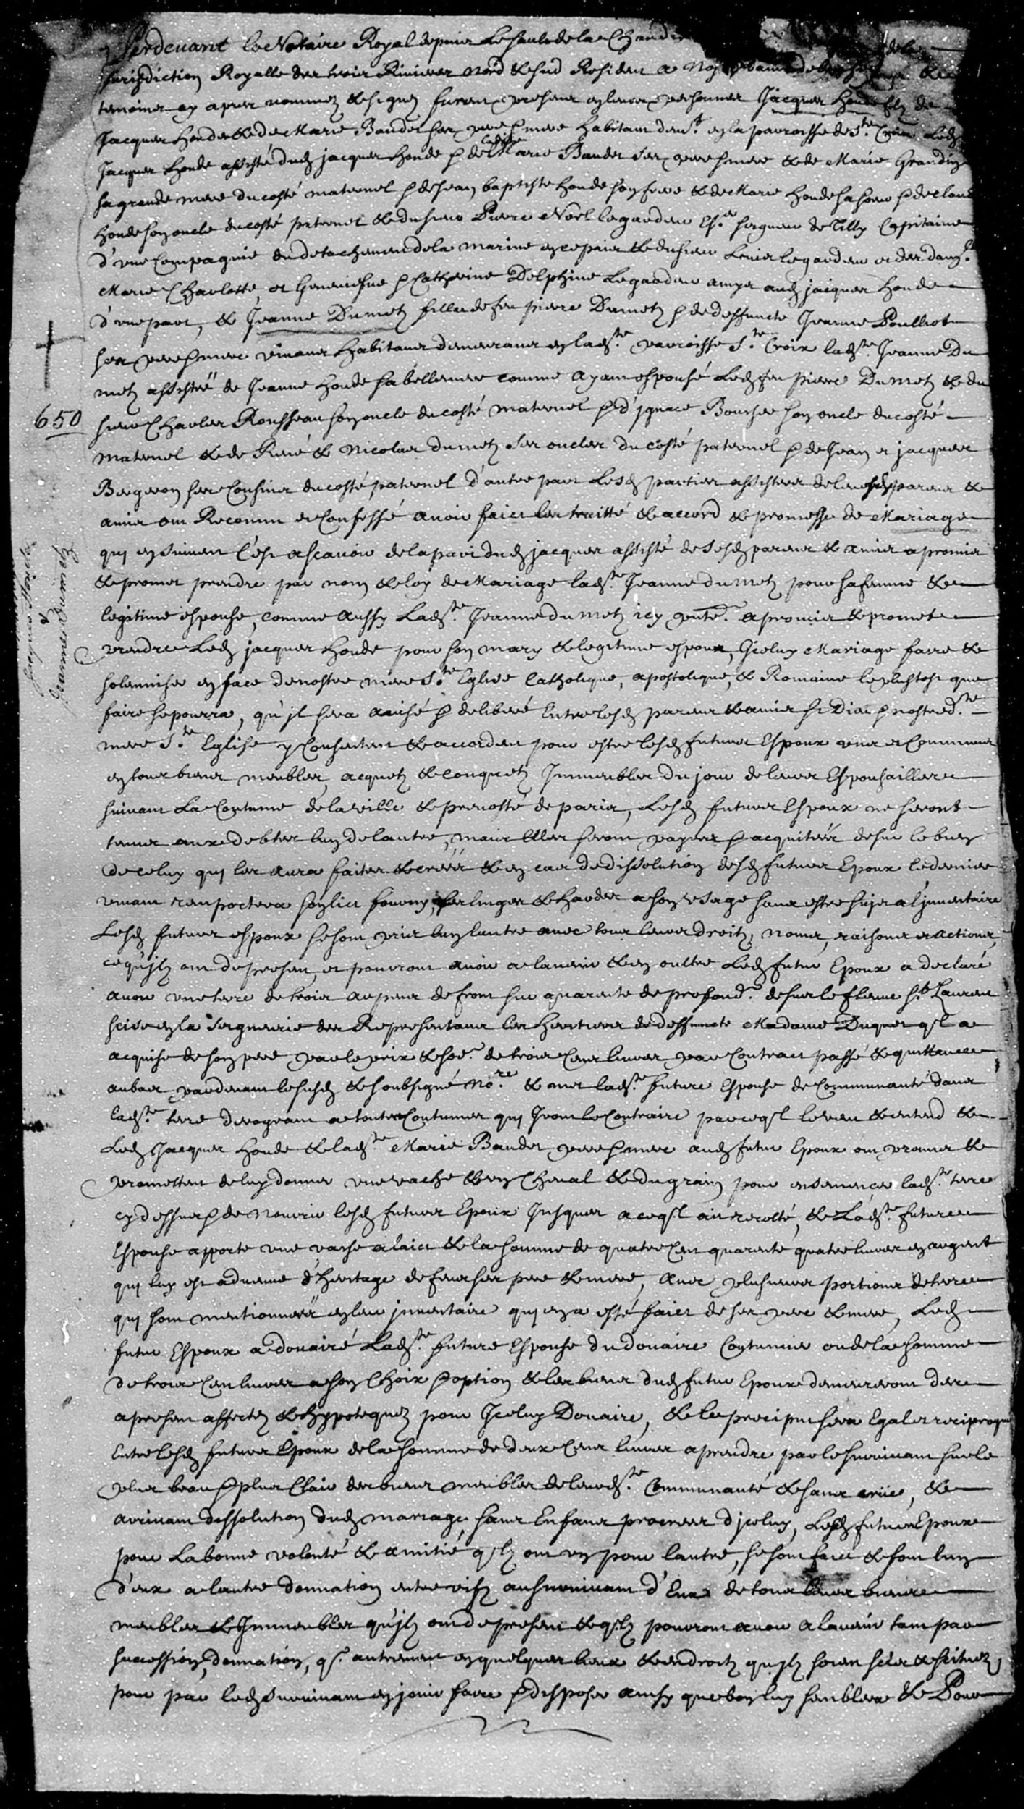 Pardevant Le Notaire Royal depuis Le Sault de la Chaudie
Jurisdiction Royalle des trois Rivieres nord & sud Residen a
temoins cy apres nommez & signez furent presens en leurs personnes Jacques Houde filz de
Jacques Houde & de Marie Baudet ses pere & mere habitans dem.t en la parroisse de S.te Croix Led.
Jacques Houde assisté dud. jacques houde & de ladite Marie Baudet ses pere & mere & de Marie
sa grande mere du costé maternel & de Jean baptiste houde son frere & de Marie houde sa soeur & de Claude
Houde son oncle du costé paternel & du sieur Pierre Noël legardeur Es.r seigneur de Tilly Capitaine
d'une Compagnie du detachement de la marine en ce pais & du sieur Louis legardeur
Marie Charlotte et Genevieve & Catherine Delphine Legardeur amys aud. jacques Houde
d'une part, & Jeanne Dumetz fille de feu pierre Dumetz & de deffuncte Jeanne Poulliot
ses pere & mere vivans habitans demeurans en lad.te parroisse S.te Croix lad.te Jeanne Du
metz assistée de Jeanne Houde sa belle mere comme ayant espousé Led. feu pierre Dumetz & du
sieur Charles Rousseau son oncle du costé maternel & d'ignace Boucher son oncle du costé
650
maternel & de René & Nicolas dumetz ses oncles du costé paternel & de Jean et jacques
Bergeron ses Cousins du costé paternel d'autre part Lesd. parties assistées de leursd. parens &
amis ont Reconnu et Confessé avoir faict les traitté & accord & promesse de Mariage
quy en suivent C'est ascavoir de la part dud. jacques assisté de sesd. parens & amis a promis
& promet prendre par nom & loy de Mariage lad.te Jeanne dumetz pour sa femme &
legitime espouse, comme aussy Lad.te Jeanne dumetz icy pnte. a promis & promet
Jacques Houde
&
Jeanne Dumetz
prendre Led. jacques houde pour son mary & legitime espoux, Iceluy Mariage faire &
solemniser en face de nostre mere S.te Eglise Catholique, apostolique, & Romaine le plustost que
faire se poura, qu'il sera avisé & deliberé Entre lesd. parens & amis si Dieu & nostred.te
mere S.te Eglise y Consentent & accordent pour estre lesd. futurs Espoux uns et Communs
en tous biens meubles, acquetz & conquetz Immeubles du jour de leurs Espousailles
suivant La Coutume de la ville & prevosté de paris, Lesd. futurs Espoux ne seront
tenus aux debtes l'un de l'autre, mais Elles seront payées & acquitées de sur le bien
de celuy quy les aura faites & créées & en cas de dissolution desd. futurs Epoux le dernier
vivant remportera son lict fourny, ses linges & hardes a son usage sans estre sujet a l'inventaire
Lesd. futurs espoux se sont pris l'un l'autre avec tous leurs droitz, noms, raisons et actions
ce qu'ilz ont de present et pouront avoir a l'avenir & en oultre Led. futur Epoux a declaré
avoir une terre de trois arpens de front sur quarente de profond.r de sur le fleuve S.t Laurent
scise en la seigneurie des Representans les heritiers de deffuncte Madame Duquet q'il a
acquise de son pere par le prix & so.e de trois cens livres par Contract passé & quittance
au bas pardevant lesusd. & soubsigné No.re & met lad.te future Espouse de Communauté dans
lad.te terre derogeant a toutes Coutumes quy seront le Contraire parceq'il le veut & entend &
Led. Jacques Houde & lad.te Marie Baudet pere & mere aud. futur Epoux ont promis &
promettent de luy donner une vache & un Cheval & du grain pour ensemencer lad.te terre
cy dessus & de nourrir lesd. futurs Epoux Jusques a ceq'il ait recolté, & Lad.te future
Espouse apporte une vache a laict & la somme de quatre Cent quarente quatre livres en argent
quy luy est advenue d'heritage de feu ses pere & mere, Avec plusieurs portions de terre
quy sont mentionnées en leur inventaire quy en a esté faict de ses pere & mere, Led.
futur Espoux a douairé Lad.te future Espouse du douaire Coutumier ou de la somme
de trois Cens livres a son Choix & option & les biens dud. futur Epoux demeureront des
a present affectez & hypotequez pour Iceluy Douaire, & le preciput sera Egal et reciproque
Entre lesd. futurs Epoux de la somme de deux Cens livres a prendre par le survivant sur le
plus beau & plus Clair des biens meubles de leurd.te Communauté & sans criée, &
arrivant dissolution dud. mariage sans Enfans procreez d'iceluy, Lesd. futurs Epoux
pour La bonne volonté & amitié q'ilz ont un pour l'autre, se sont faict & font l'un
d'eux a l'autre donnation entre vifz au survivant d'Eux de tous leurs biens
meubles & Immeubles qu'ilz ont de present & q'ilz pourront avoir a l'avenir tant par
succession, donnation, q. autrement en quelques lieux & endroitz qu'ilz soient scis & scituez
pour par led. survivant en jouir faire & disposer ainsy que bon luy semblera & Pour